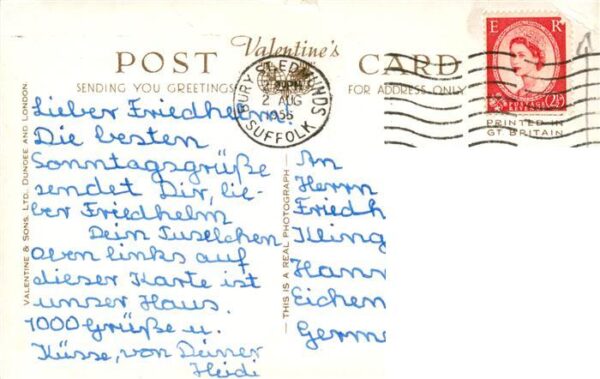 Valentine's
POST CARD
SENDING YOU GREETINGS
FOR ADDRESS ONLY
BURY ST. EDMUNDS
2 AUG
1955
SUFFOLK
E R
POSTAGE
2½
PRINTED IN
GT BRITAIN
VALENTINE & SONS, LTD., DUNDEE AND LONDON.
THIS IS A REAL PHOTOGRAPH
Lieber Friedhelm!
Die besten
Sonntagsgrüße
sendet Dir, lie-
ber Friedhelm
Dein Tuselchen
oben links auf
dieser Karte ist
unser Haus.
1000 Grüße u.
Küsse, von Deiner
Heidi
An
Herrn
Friedh
Kling
Hann
Eichen
Germ